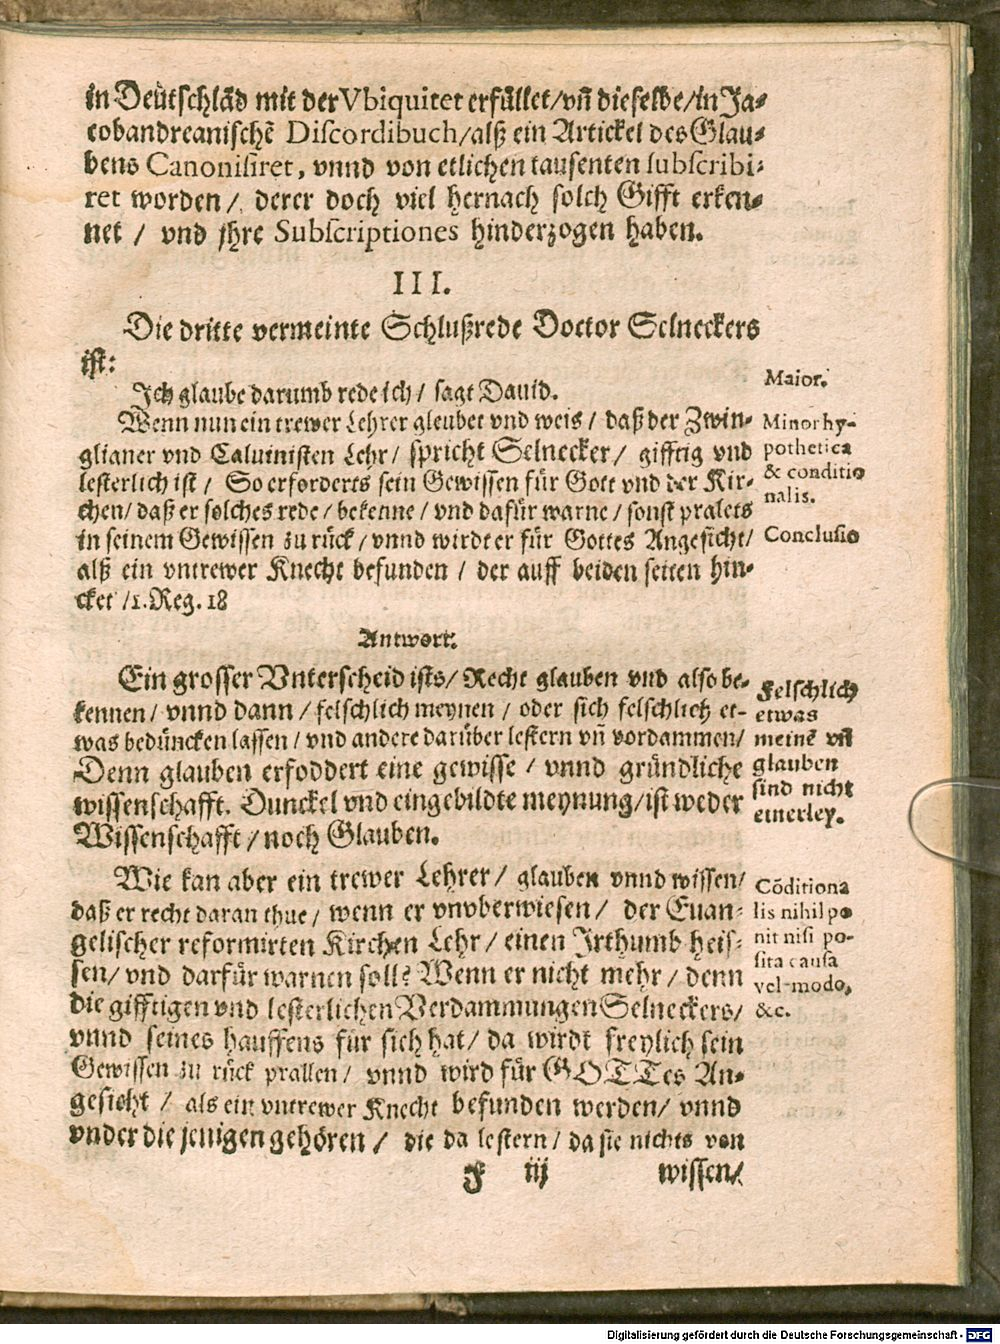 in Deütschlād mit der Vbiquitet erfüllet/vn̄ dieselbe/in Ja⸗
cobandreanischē Discordibuch/alß ein Artickel des Glau⸗
bens Canonisiret, vnnd von etlichen tausenten subscribi⸗
ret worden/ derer doch viel hernach solch Gifft erken⸗
net / vnd jhre Subscriptiones hinderzogen haben.
III.
Die dritte vermeinte Schlußrede Doctor Selneckers
ist:
Ich glaube darumb rede ich / sagt Dauid.
Maior.
Wenn nun ein trewer Lehrer gleubet vnd weis / daß der Zwin⸗
glianer vnd Caluinisten Lehr/ spricht Selnecker/ gifftig vnd
lesterlich ist / So erforderts sein Gewissen für Gott vnd der Kir⸗
chen/ daß er solches rede / bekenne / vnd dafür warne / sonst pralets
in seinem Gewissen zu rück / vnnd wirdt er für Gottes Angesicht/
alß ein vntrewer Knecht befunden / der auff beiden seiten hin⸗
cket /1. Reg. 18
Minor hy-
pothetica
& conditio
nalis.
Conclusio
Antwort.
Ein grosser Vnterscheid ists/ Recht glauben vnd also be⸗
kennen/ vnnd dann / felschlich meynen / oder sich felschlich et-
was bedüncken lassen / vnd andere darüber lestern vn̄ vordammen/
Denn glauben erfoddert eine gewisse / vnnd gründliche
wissenschafft. Dunckel vnd eingebildte meynung/ist weder
Wissenschafft / noch Glauben.
Felschlich
etwas
meinē vn̄
glauben
sind nicht
einerley.
Wie kan aber ein trewer Lehrer/ glauben vnnd wissen/
daß er recht daran thue / wenn er vnvberwiesen/ der Euan⸗
gelischer reformirten Kirchen Lehr / einen Irthumb heis⸗
sen/ vnd darfür warnen soll? Wenn er nicht mehr / denn
die gifftigen vnd lesterlichen Verdammungen Selneckers/
vnnd seines hauffens für sich hat/ da wirdt freylich sein
Gewissen zu rück prallen / vnnd wird für GOTTes An⸗
gesicht / als ein vntrewer Knecht befunden werden/ vnnd
vnder die jenigen gehören / die da lestern / da sie nichts von
Cōditiona
lis nihil po
nit nisi po-
sita causa
vel modo,
&c.
F iij wissen/
Digitalisierung gefördert durch die Deutsche Forschungsgemeinschaft - DFG